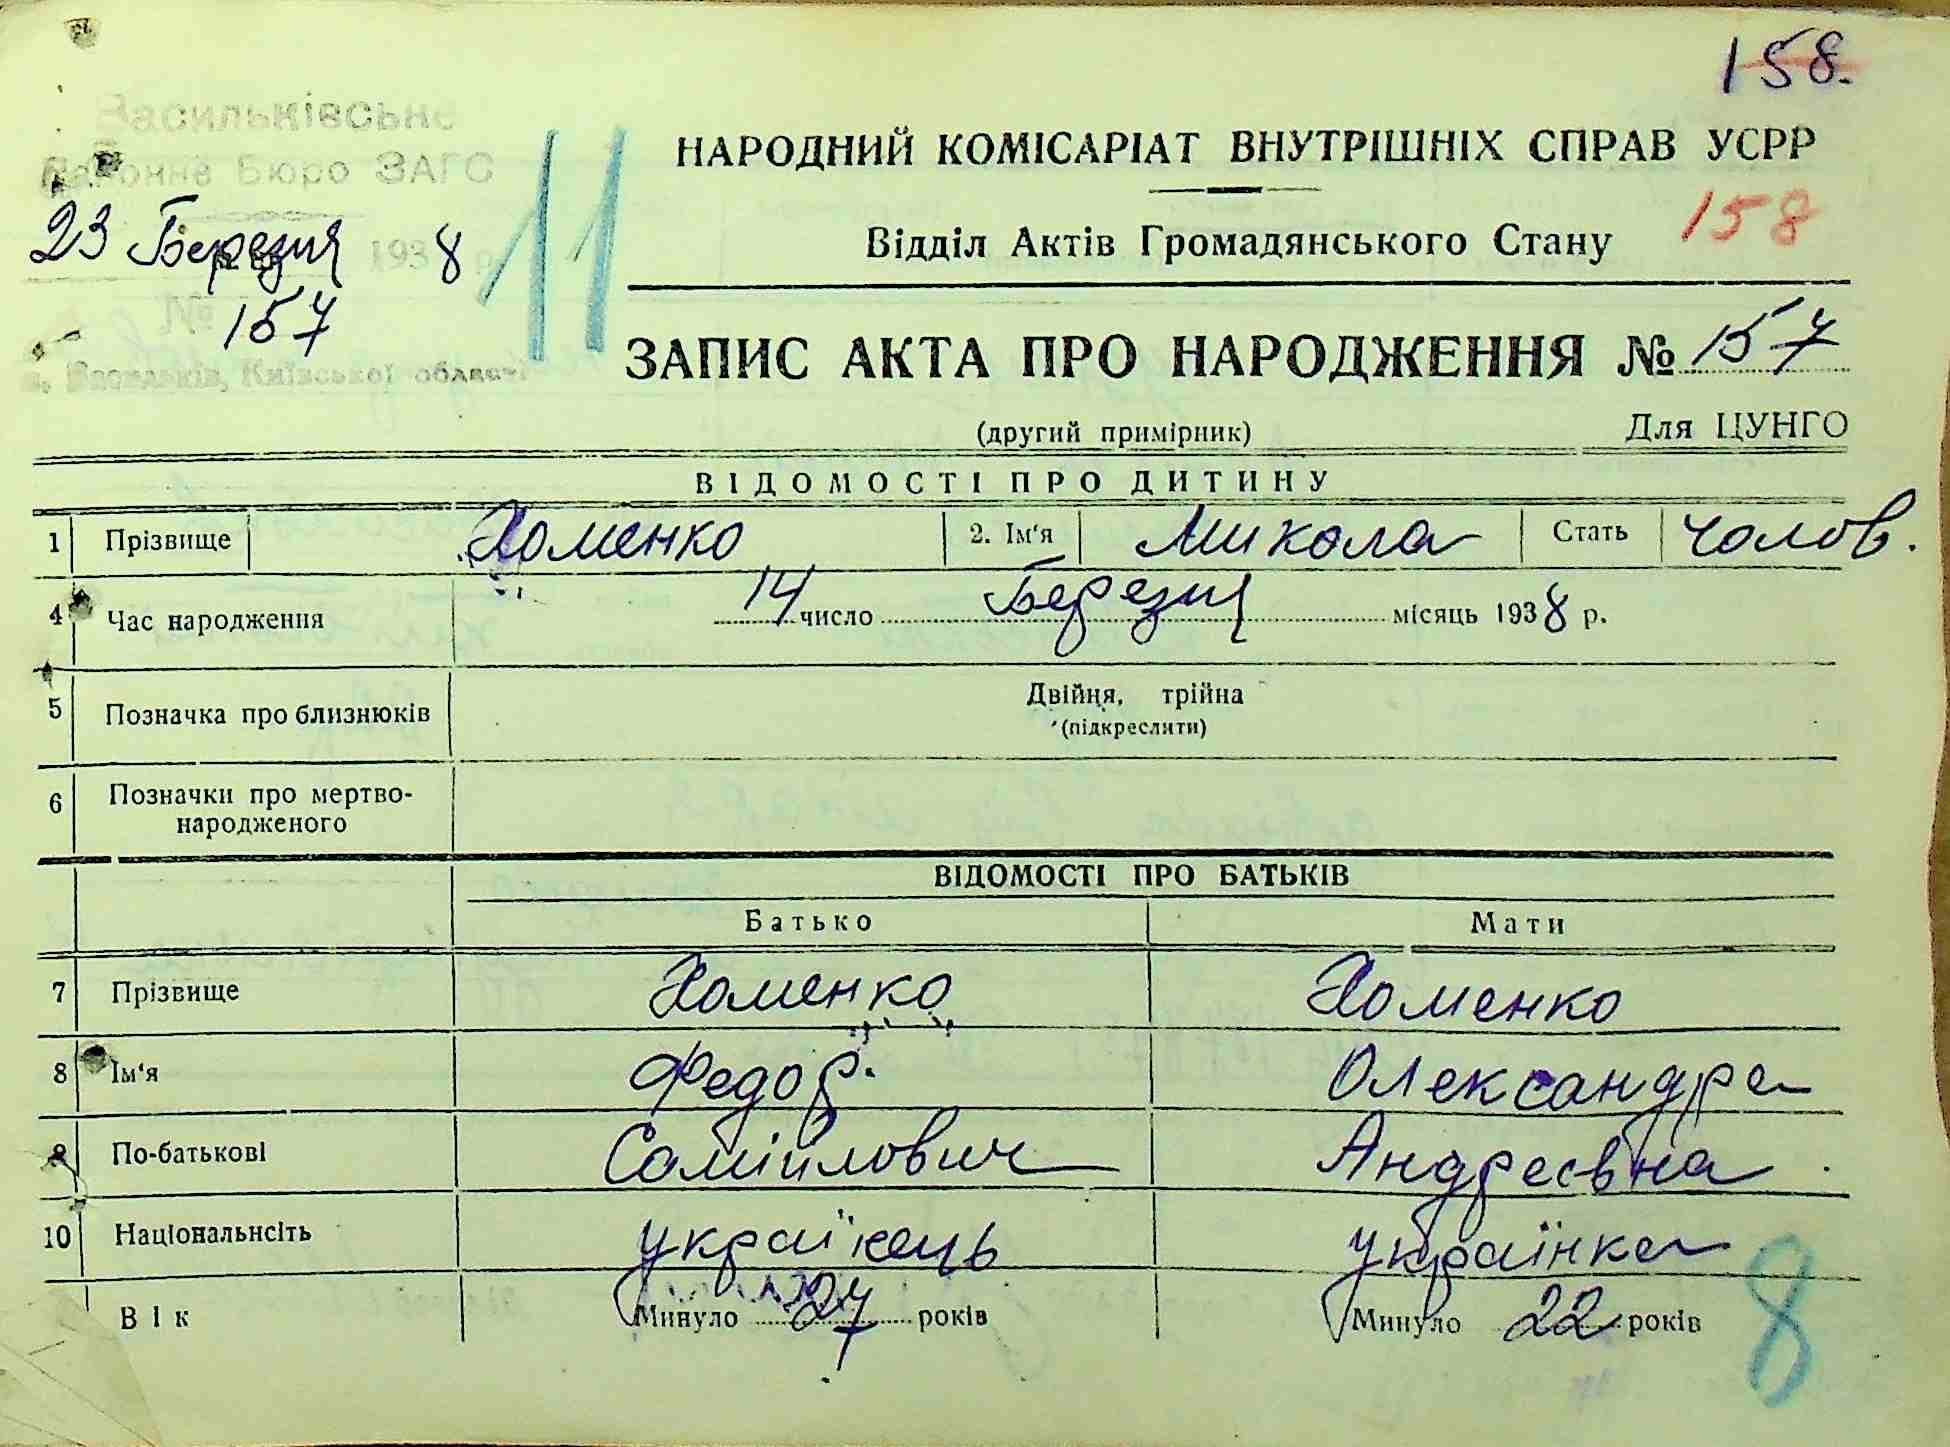 158.
Васильківське
Районне Бюро ЗАГС
НАРОДНИЙ КОМІСАРІАТ ВНУТРІШНІХ СПРАВ УСРР
23 Березня 1938 р.
11
158
Відділ Актів Громадянського Стану
№ 157
м. Васильків, Київської області
ЗАПИС АКТА ПРО НАРОДЖЕННЯ № 157
(другий примірник) Для ЦУНГО
ВІДОМОСТІ ПРО ДИТИНУ
1 Прізвище Хоменко 2. Ім'я Микола Стать чолов.
4 Час народження 14 число Березня місяць 1938 р.
5 Позначка про близнюків Двійня, трійна
(підкреслити)
6 Позначки про мертво-
народженого
ВІДОМОСТІ ПРО БАТЬКІВ
Батько Мати
7 Прізвище Хоменко Хоменко
8 Ім'я Федор. Олександра
9 По-батькові Самійлович Андреєвна
10 Національнсіть українець українка
Вік Минуло 27 років Минуло 22 років
8